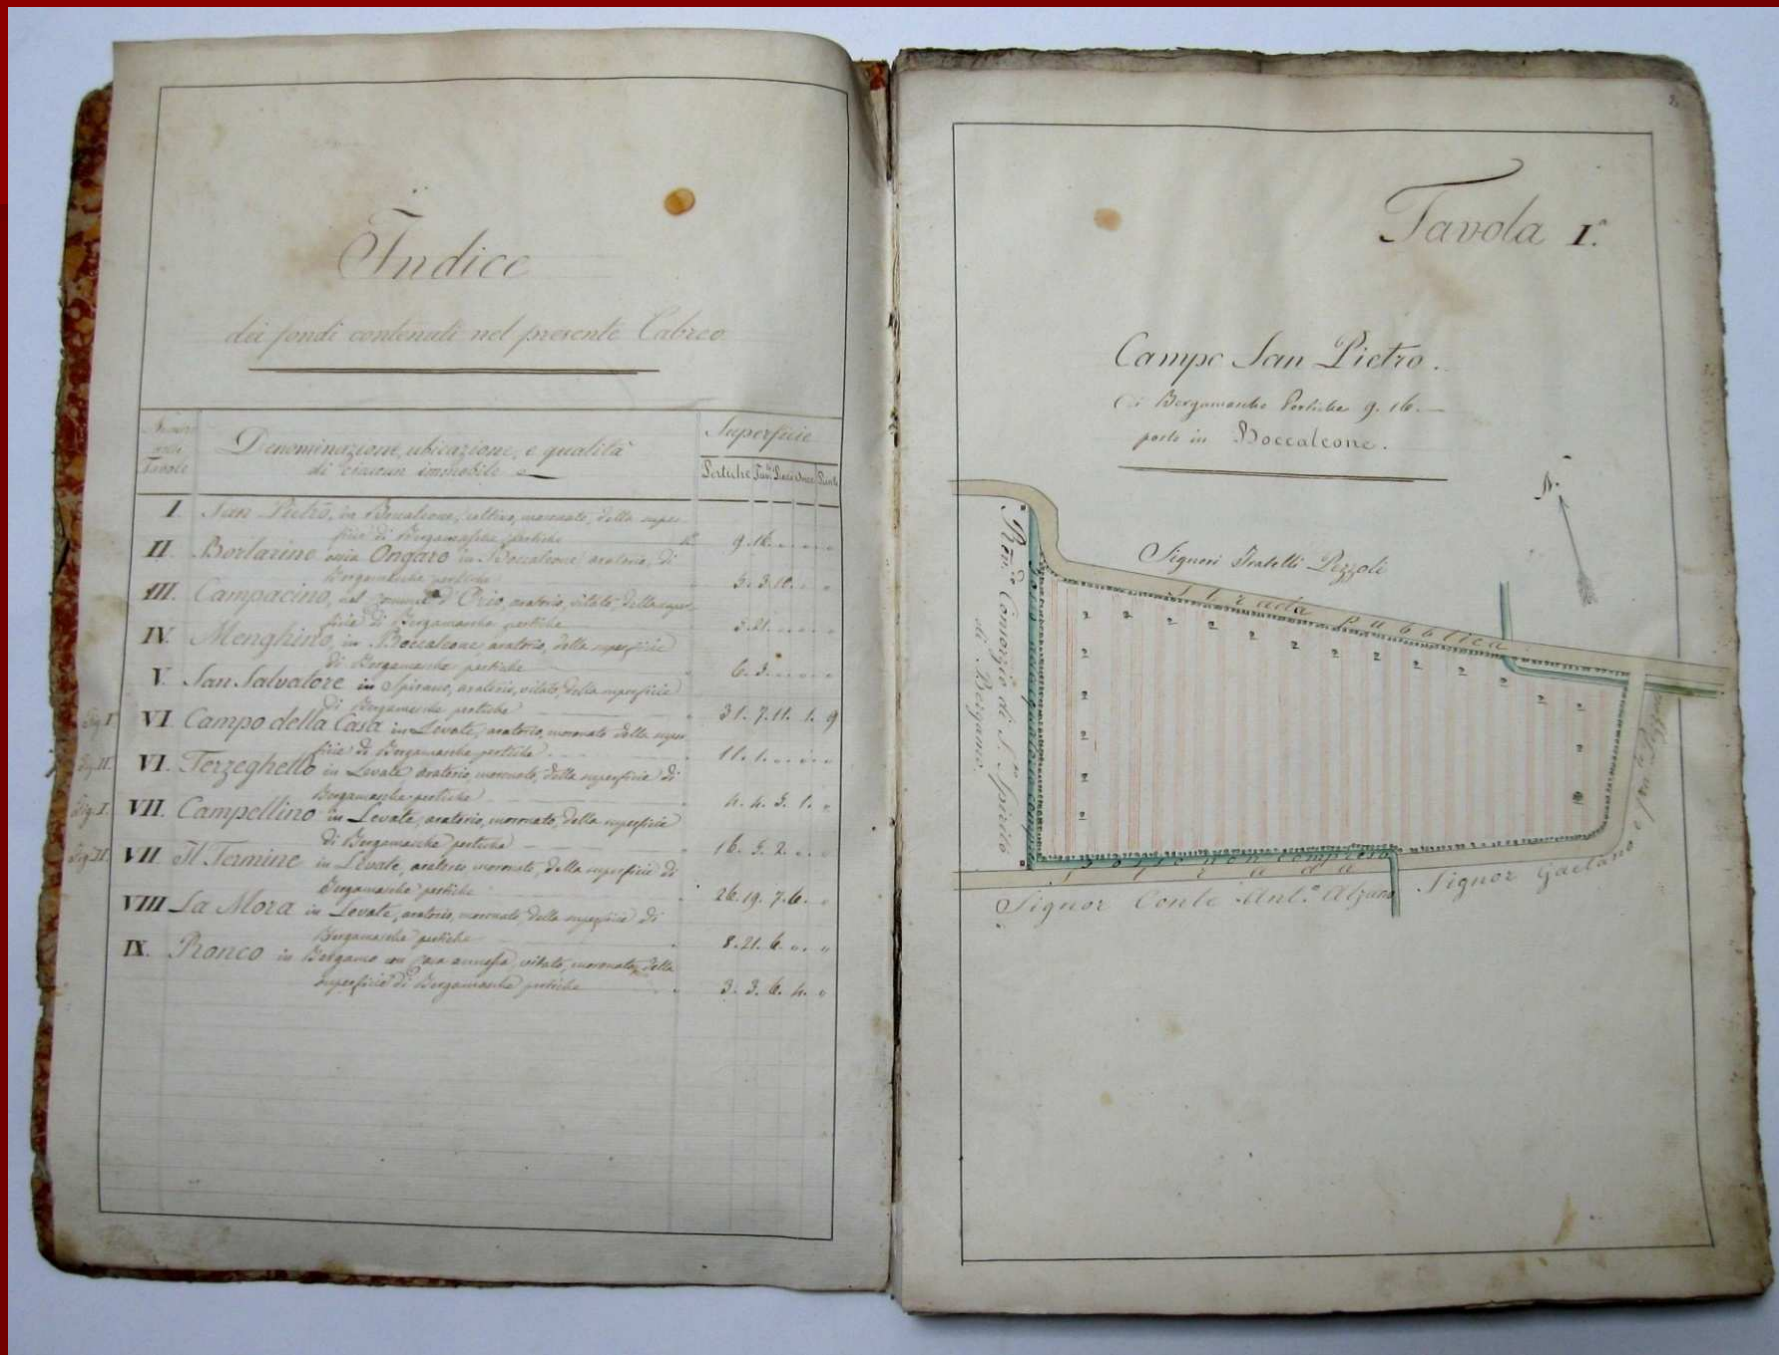 Indice
dei fondi contenuti nel presente Cabreo
Numero
delle
Tavole
Denominazione, ubicazione, e qualità
di ciascun immobile
Superficie
Pertiche Tav. Piedi Once Punti
I. San Pietro, in Boccaleone, coltivo, moronato, della super-
ficie di Bergamasche pertiche 9. 16.
II. Bortarino ossia Ongaro in Boccaleone aratorio, di
Bergamasche pertiche 5. 3. 10.
III. Campacino, nel Comune d'Orio, aratorio, vitato, della super-
ficie di Bergamasche pertiche 3. 21.
IV. Menghino, in Boccaleone, aratorio, della superficie
di Bergamasche pertiche 6. 3.
V. San Salvatore in Spirano, aratorio, vitato, della superficie
di Bergamasche pertiche 31. 7. 11. 1. 9
Fig. I. VI. Campo della Casa in Levate, aratorio, moronato della super-
ficie di Bergamasche pertiche 11. 1.
Fig. II. VI. Terzeghello in Levate aratorio, moronato, della superficie di
Bergamasche pertiche 4. 4. 3. 1.
Fig. I. VII. Campellino in Levate, aratorio, moronato, della superficie
di Bergamasche pertiche 16. 5. 2.
Fig. II. VII. Il Termine in Levate, aratorio moronato, della superficie di
Bergamasche pertiche 26. 19. 7. 6.
VIII. La Mora in Levate, aratorio, moronato della superficie di
Bergamasche pertiche 8. 21. 6.
IX. Ronco in Bergamo con casa annessa, vitato, moronato, della
superficie di Bergamasche pertiche 3. 3. 6. 4.
Tavola I.
Campo San Pietro.
Di Bergamasche Pertiche 9. 16.
posto in Boccaleone.
N.
Signori Fratelli Pezzoli
Strada Pubblica
Consorzio di S. Spirito
di Bergamo.
Fosso non compreso
Strada
Signor Conte Ant.o Alzano
Signor Gaetano e fra.lli Pezzoli